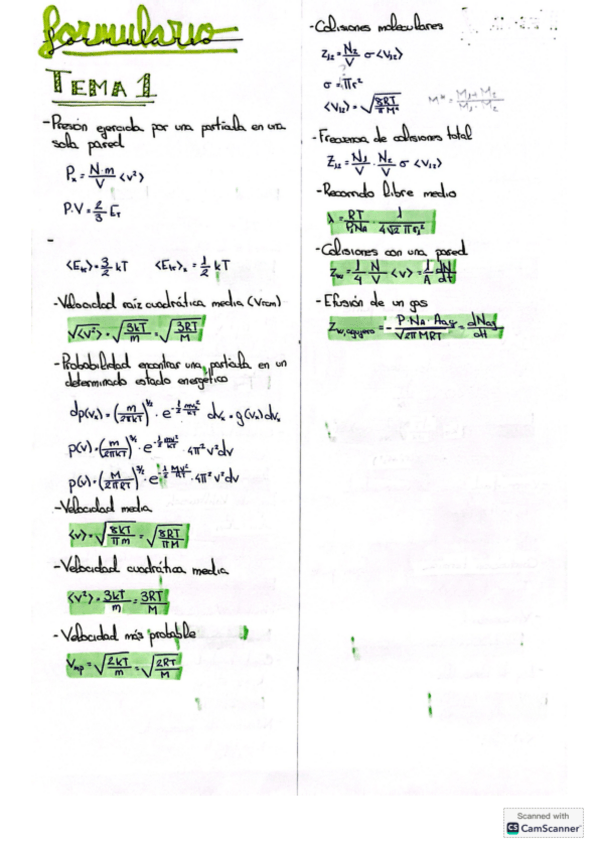 formulario
TEMA 1
-Presión ejercida por una partícula en una
sola pared
Px = N·m/V <v²>
P·V = 2/3 ET
-
<Etr> = 3/2 kT <Etr>x = 1/2 kT
-Velocidad raíz cuadrática media (vrcm)
√<v²> = √(3kT/m) = √(3RT/M)
-Probabilidad encontrar una partícula en un
determinado estado energético
dp(vx) = (m/2πkT)^1/2 · e^(-1/2 mvx²/kT) dvx = g(vx)dvx
p(v) = (m/2πkT)^3/2 · e^(-1/2 mv²/kT) · 4π²v²dv
p(v) = (M/2πRT)^3/2 · e^(-1/2 Mv²/RT) · 4π²v²dv
-Velocidad media
<v> = √(8kT/πm) = √(8RT/πM)
-Velocidad cuadrática media
<v²> = 3kT/m = 3RT/M
-Velocidad más probable
Vmp = √(2kT/m) = √(2RT/M)
-Colisiones moleculares
z12 = N2/V σ<v12>
σ = πr²
<v12> = √(8RT/πM*) M* = M1+M2/M1·M2
-Frecuencia de colisiones total
Z12 = N1/V · N2/V σ <v12>
-Recorrido libre medio
λ = RT/P1NA · 1/4√2 πr1²
-Colisiones con una pared
Zw = 1/4 N/V <v> = 1/A dN/dt
-Efusión de un gas
Zw,agujero = - P·NA·Aag/√2πMRT = dNag/dt
Scanned with
CS CamScanner